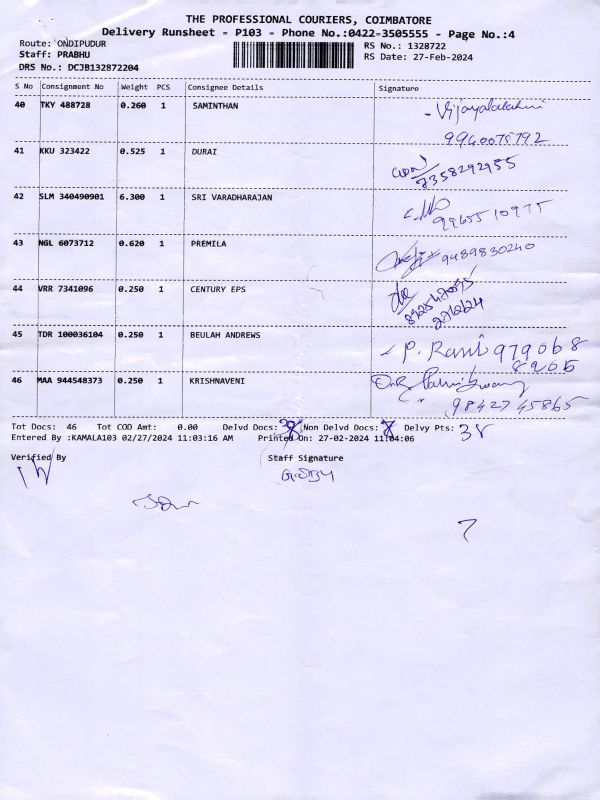 THE PROFESSIONAL COURIERS, COIMBATORE
Delivery Runsheet - P103 - Phone No.:0422-3505555 - Page No.:4
Route: ONDIPUDUR RS No.: 1328722
Staff: PRABHU RS Date: 27-Feb-2024
DRS No.: DCJB132872204
S No Consignment No Weight PCS Consignee Details Signature
40 TKY 488728 0.260 1 SAMINTHAN Vijayalakshmi
9940075792
41 KKU 323422 0.525 1 DURAI
7358292955
42 SLM 340490901 6.300 1 SRI VARADHARAJAN
9965510975
43 NGL 6073712 0.620 1 PREMILA 9489830240
44 VRR 7341096 0.250 1 CENTURY EPS
45 TDR 100036104 0.250 1 BEULAH ANDREWS P. Rani 979068
8905
46 MAA 944548373 0.250 1 KRISHNAVENI
9842745865
Tot Docs: 46 Tot COD Amt: 0.00 Delvd Docs: 38 Non Delvd Docs: 8 Delvy Pts: 38
Entered By :KAMALA103 02/27/2024 11:03:16 AM Printed On: 27-02-2024 11:04:06
Verified By Staff Signature